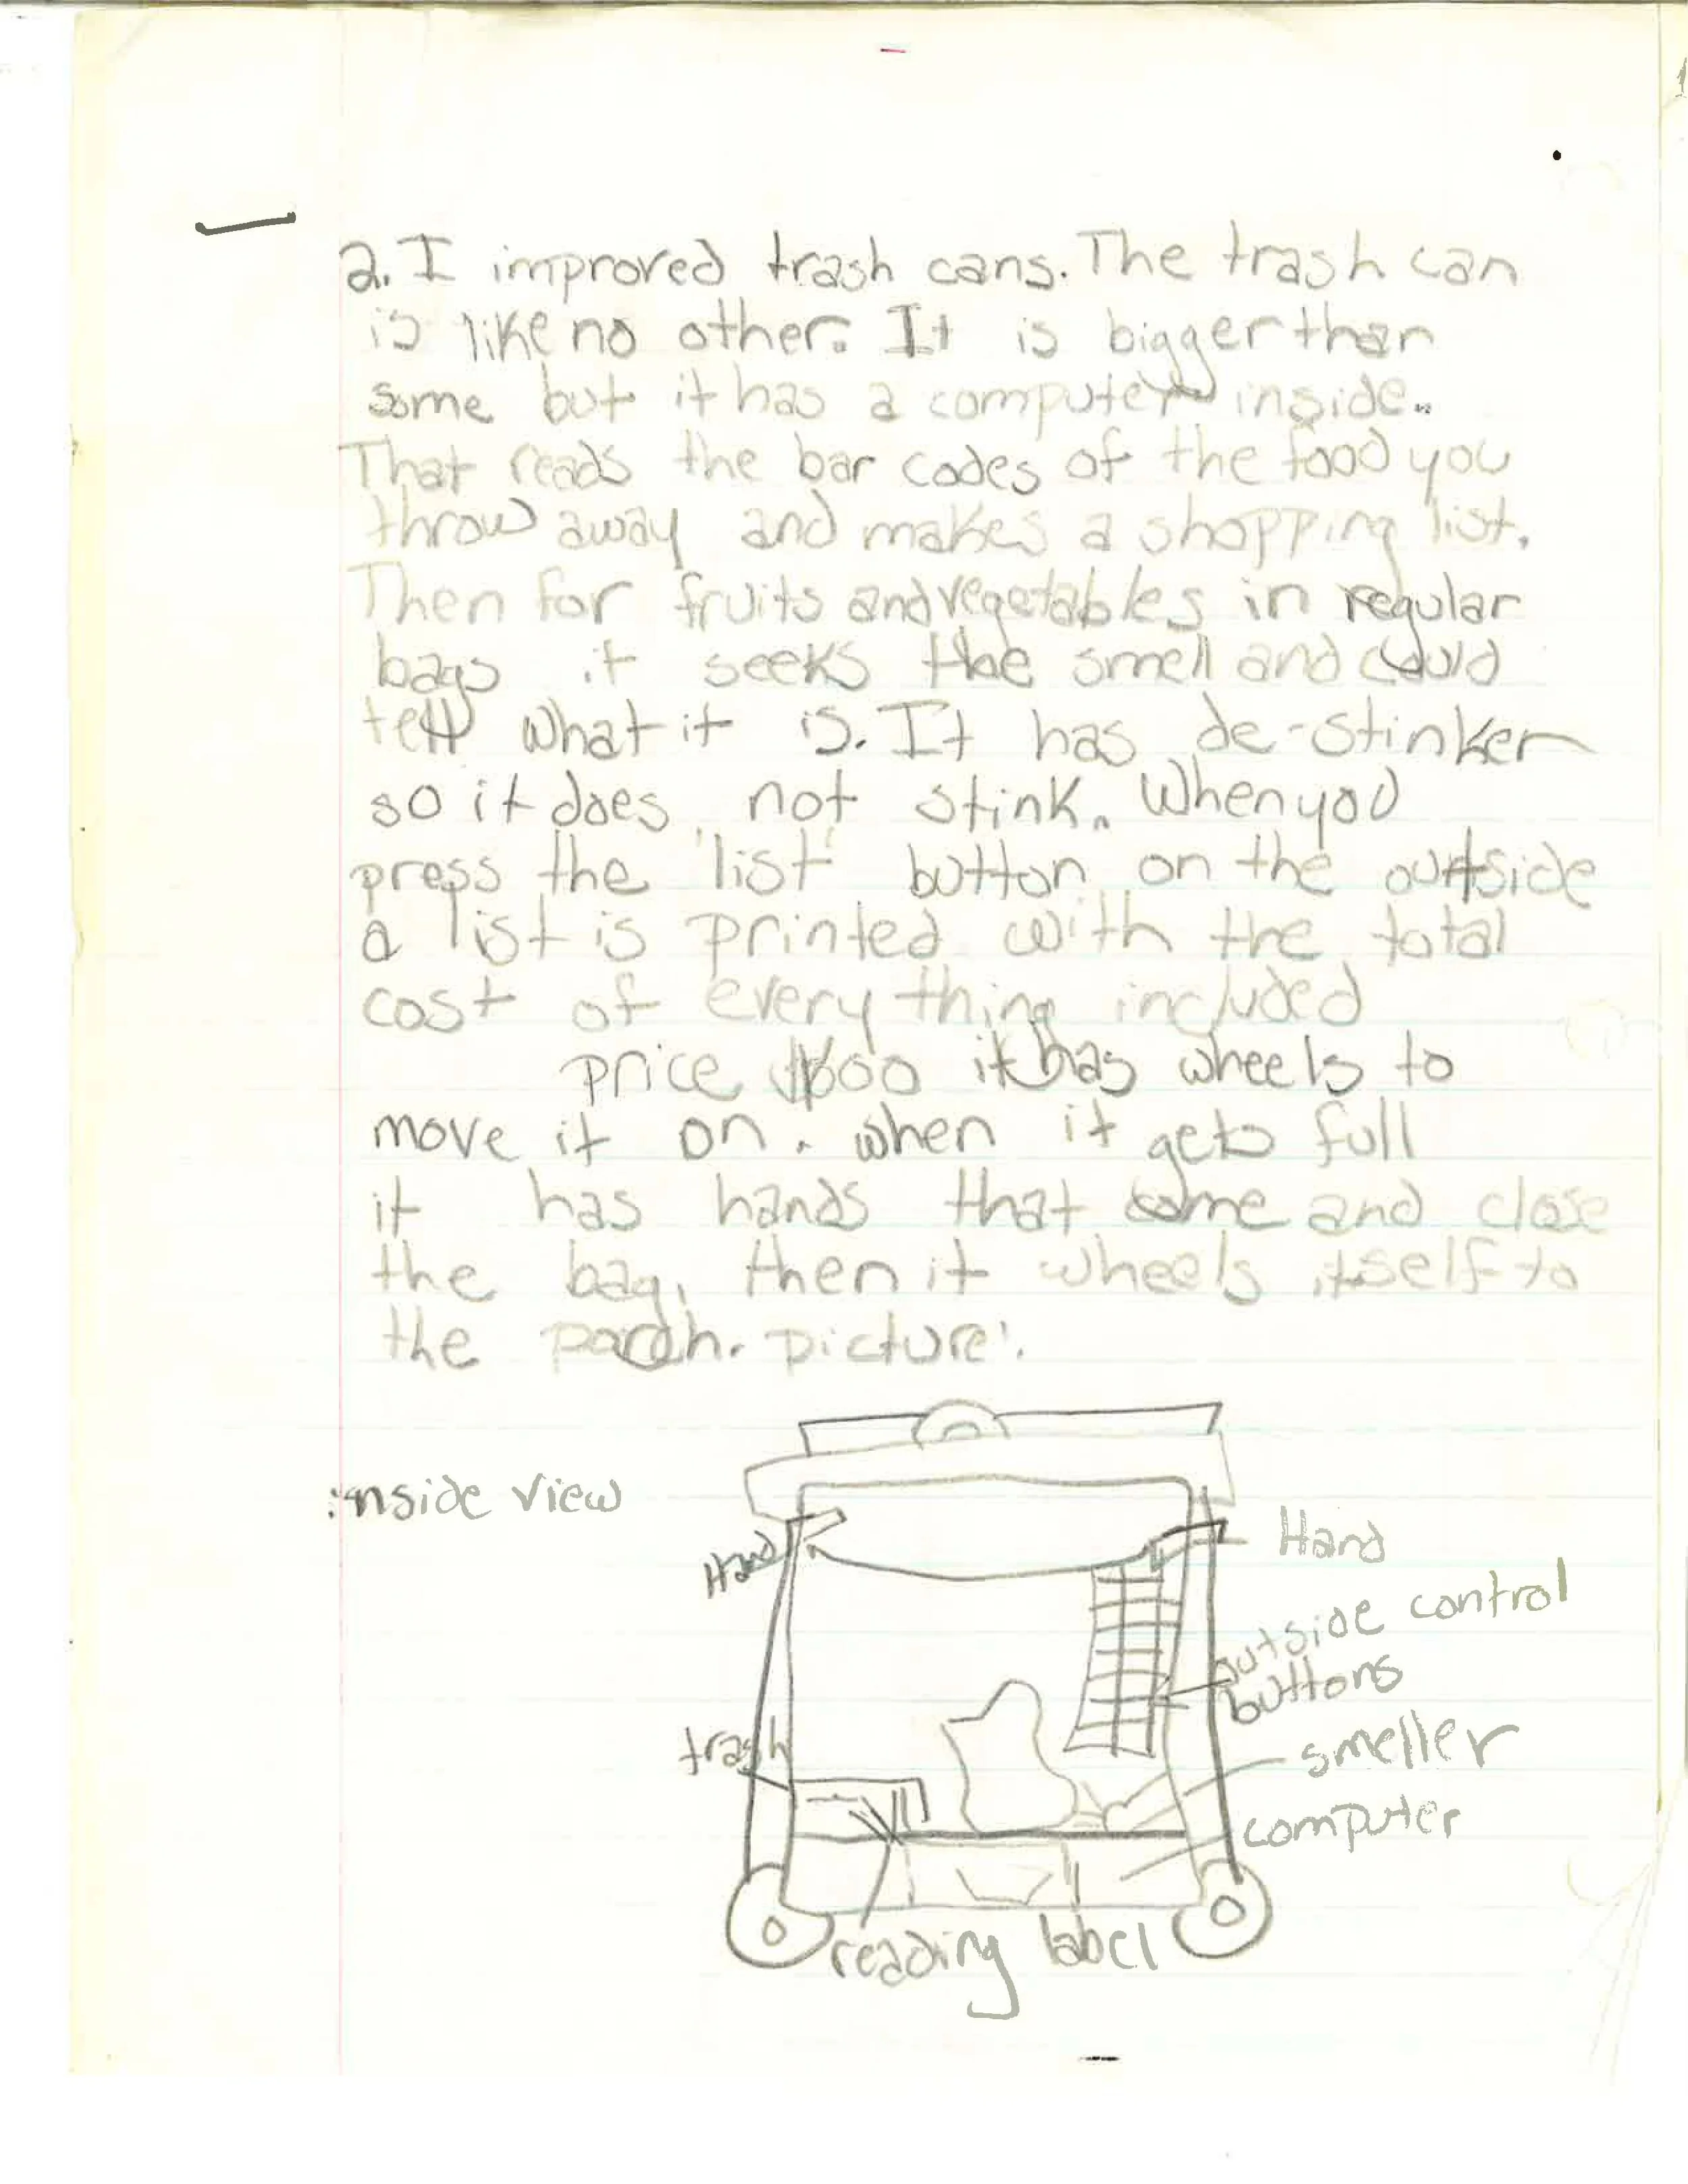 2. I improved trash cans. The trash can
is like no other. It is bigger than
some but it has a computer inside.
That reads the bar codes of the food you
throw away and makes a shopping list.
Then for fruits and vegetables in regular
bags it seeks the smell and could
tell what it is. It has de-stinker
so it does not stink. When you
press the 'list' button on the outside
a list is printed with the total
cost of every thing included
price $600 it has wheels to
move it on. when it gets full
it has hands that come and close
the bag, then it wheels itself to
the porch. picture:
inside view
Hand
Hand
outside control
buttons
trash
smeller
computer
reading label